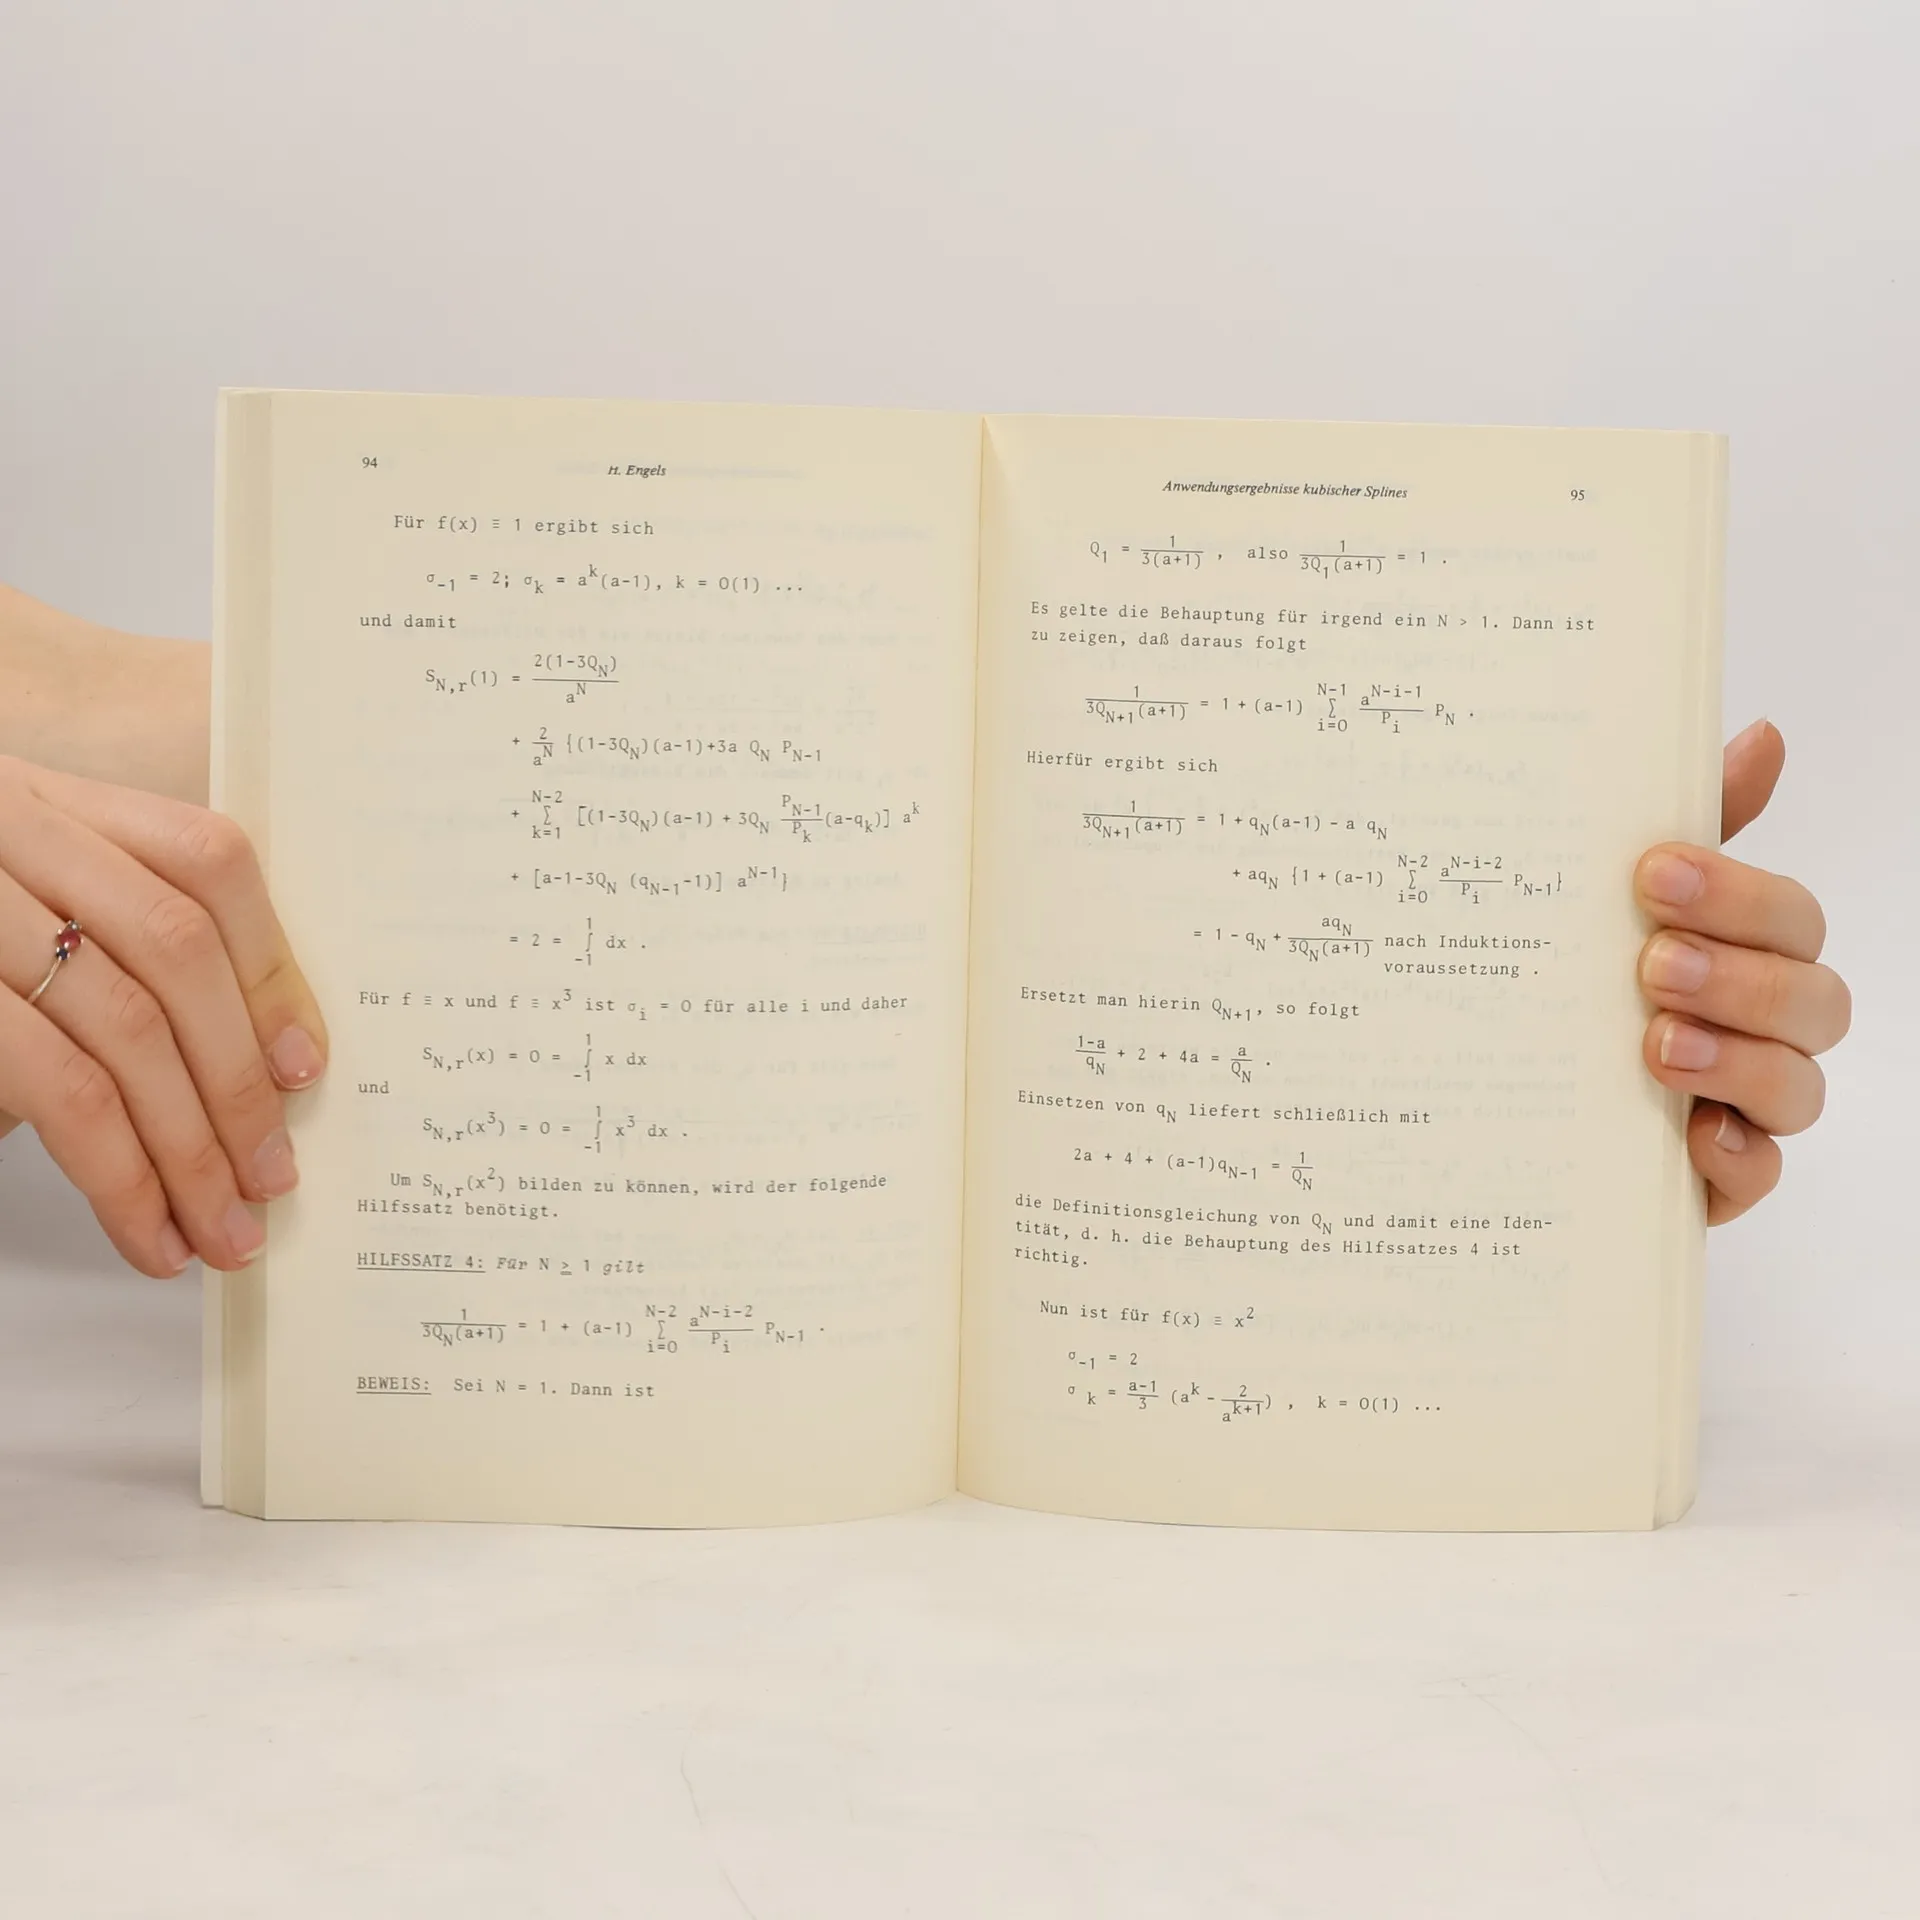 94
H. Engels
Für f(x) ≡ 1 ergibt sich
σ_{-1} = 2; σ_k = a^k(a-1), k = 0(1) ...
und damit
S_{N,r}(1) = \frac{2(1-3Q_N)}{a^N}
+ \frac{2}{a^N} {(1-3Q_N)(a-1)+3a Q_N P_{N-1}
+ \sum_{k=1}^{N-2} [(1-3Q_N)(a-1) + 3Q_N \frac{P_{N-1}}{P_k}(a-q_k)] a^k
+ [a-1-3Q_N (q_{N-1}-1)] a^{N-1}}
= 2 = \int_{-1}^{1} dx .
Für f ≡ x und f ≡ x^3 ist σ_i = 0 für alle i und daher
S_{N,r}(x) = 0 = \int_{-1}^{1} x dx
und
S_{N,r}(x^3) = 0 = \int_{-1}^{1} x^3 dx .
Um S_{N,r}(x^2) bilden zu können, wird der folgende
Hilfssatz benötigt.
HILFSSATZ 4: Für N ≥ 1 gilt
\frac{1}{3Q_N(a+1)} = 1 + (a-1) \sum_{i=0}^{N-2} \frac{a^{N-i-2}}{P_i} P_{N-1} .
BEWEIS: Sei N = 1. Dann ist
Anwendungsergebnisse kubischer Splines
95
Q_1 = \frac{1}{3(a+1)} , also \frac{1}{3Q_1(a+1)} = 1 .
Es gelte die Behauptung für irgend ein N > 1. Dann ist
zu zeigen, daß daraus folgt
\frac{1}{3Q_{N+1}(a+1)} = 1 + (a-1) \sum_{i=0}^{N-1} \frac{a^{N-i-1}}{P_i} P_N .
Hierfür ergibt sich
\frac{1}{3Q_{N+1}(a+1)} = 1 + q_N(a-1) - a q_N
+ aq_N {1 + (a-1) \sum_{i=0}^{N-2} \frac{a^{N-i-2}}{P_i} P_{N-1}}
= 1 - q_N + \frac{aq_N}{3Q_N(a+1)} nach Induktions-
voraussetzung .
Ersetzt man hierin Q_{N+1}, so folgt
\frac{1-a}{q_N} + 2 + 4a = \frac{a}{Q_N} .
Einsetzen von q_N liefert schließlich mit
2a + 4 + (a-1)q_{N-1} = \frac{1}{Q_N}
die Definitionsgleichung von Q_N und damit eine Iden-
tität, d. h. die Behauptung des Hilfssatzes 4 ist
richtig.
Nun ist für f(x) ≡ x^2
σ_{-1} = 2
σ_k = \frac{a-1}{3} (a^k - \frac{2}{a^{k+1}}) , k = 0(1) ...